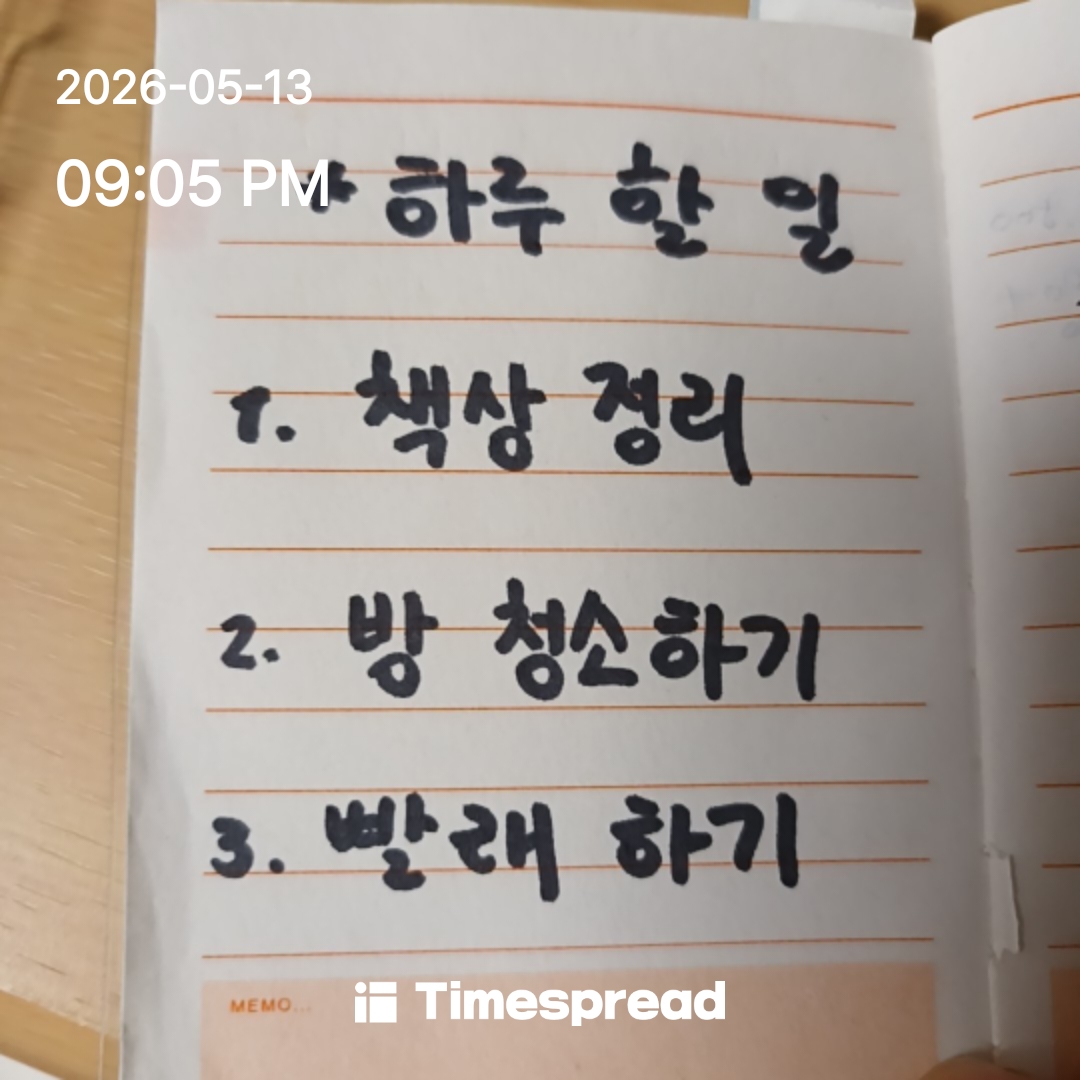 2026-05-13
09:05 PM
하루 할 일
1. 책상 정리
2. 방 청소하기
3. 빨래 하기
MEMO...
Timespread